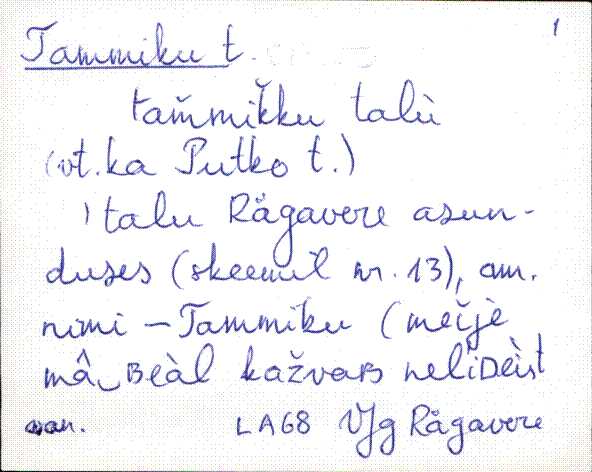 1
Tammiku t.
tam̆mik̆ku talù
(vt. ka Putko t.)
talu Rågavere asun-
duses (skeemil nr. 13), am.
nimi – Tammiku (meije
mâ‿ʙeàl kažvaʙ neliᴅèi̯st
LA68 VJg Rågavere